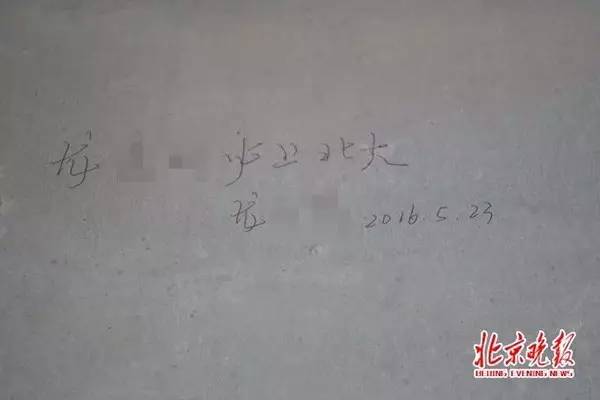 庞 必上北大
庞 2016.5.23
北京晚报
BEIJING EVENING NEWS